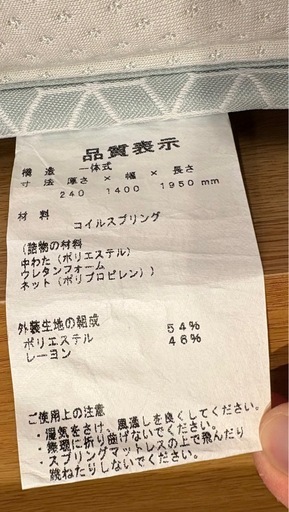 品質表示
構造 一体式
寸法 厚さ × 幅 × 長さ
240 1400 1950 mm
材料
コイルスプリング
(詰物の材料
中わた(ポリエステル)
ウレタンフォーム
ネット(ポリプロピレン))
外装生地の組成
ポリエステル 54%
レーヨン 46%
ご使用上の注意
・湿気をさけ、風通しを良くしてください。
・無理に折り曲げないでください。
・スプリングマットレスの上で飛んだり
跳ねたりしないでください。